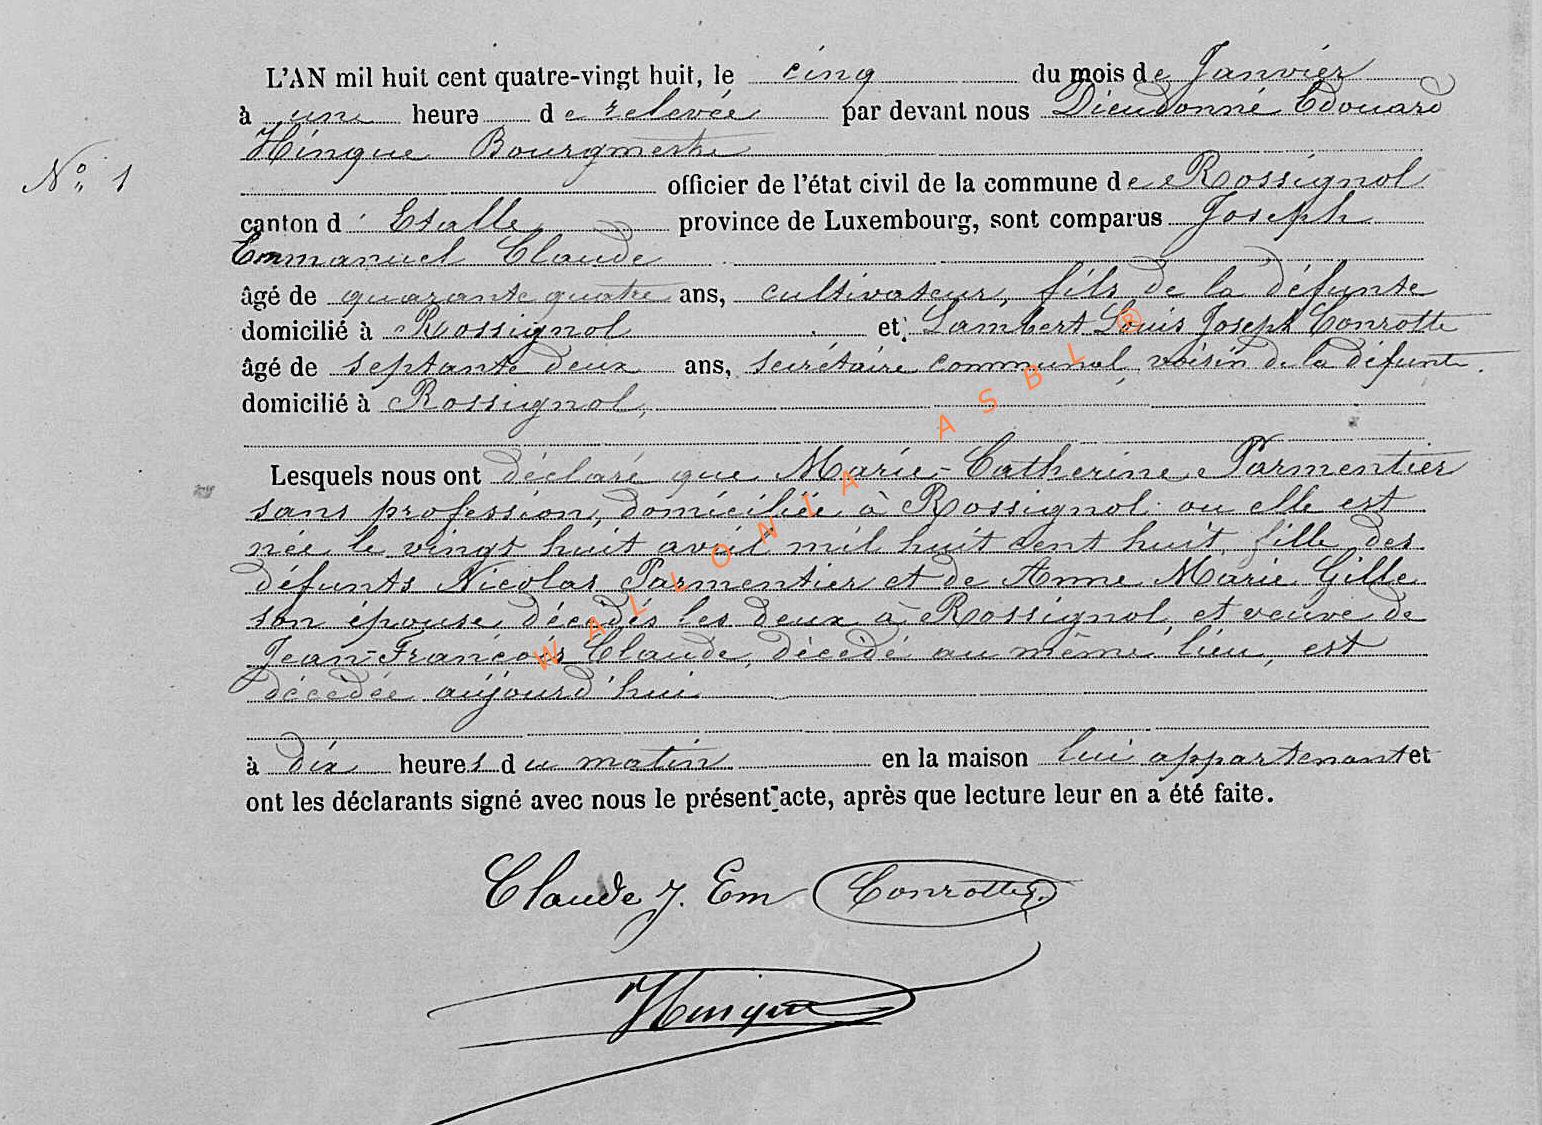 L'AN mil huit cent quatre-vingt huit, le cinq du mois de Janvier
à une heure de relevée par devant nous Dieudonné Edouard
Hinque Bourgmestre
N° 1
officier de l'état civil de la commune de Rossignol
canton d'Etalle province de Luxembourg, sont comparus Joseph
Emmanuel Claude
âgé de quarante quatre ans, cultivateur, fils de la défunte
domicilié à Rossignol et Lambert Louis Joseph Conrotte
âgé de septante deux ans, secrétaire communal, voisin de la défunte.
domicilié à Rossignol,
Lesquels nous ont déclaré que Marie-Catherine Parmentier
sans profession, domiciliée à Rossignol ou elle est
née le vingt huit avril mil huit cent huit, fille des
défunts Nicolas Parmentier et de Anne Marie Gille
son épouse, décédés les deux à Rossignol, et veuve de
Jean-François Claude, décédé au même lieu, est
décédée aujourd'hui
à dix heures du matin en la maison lui appartenant et
ont les déclarants signé avec nous le présent acte, après que lecture leur en a été faite.
Claude J. Em Conrotte
Hinque
WALLONIA ASBL ®